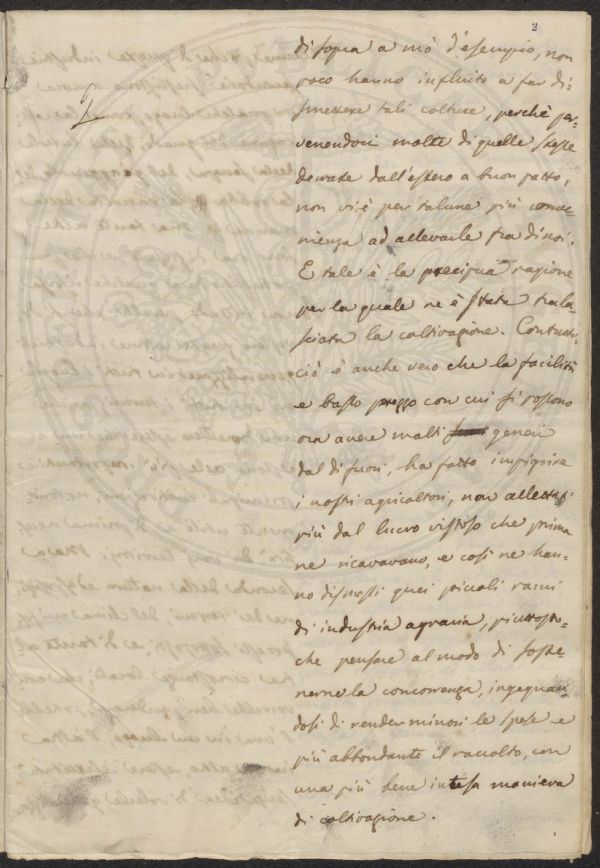 2
di sopra a mò d'esempio, non
poco hanno influito a far di-
smettere tali colture, perchè per-
venendoci molte di quelle stesse
derrate dall'estero a buon patto,
non vi è per talune più conve-
nienza ad allevarle fra di noi.
E tale è la precipua ragione
per la quale ne è stata trala-
sciata la coltivazione. Contut-
ciò è anche vero che la facilità
e basso prezzo con cui si possono
ora avere molti generi
dal di fuori, ha fatto impigrire
i nostri agricoltori, non allettati
più dal lucro vistoso che prima
ne ricavavano, e così ne han-
no dismessi quei piccoli rami
di industria agraria, piuttosto-
che pensare al modo di soste-
nerne la concorrenza, ingegnan-
dosi di render minori le spese e
più abbondante il raccolto, con
una più bene intesa maniera
di coltivazione.